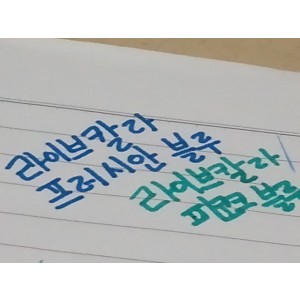 라이브칼라
프러시안 블루
라이브칼라